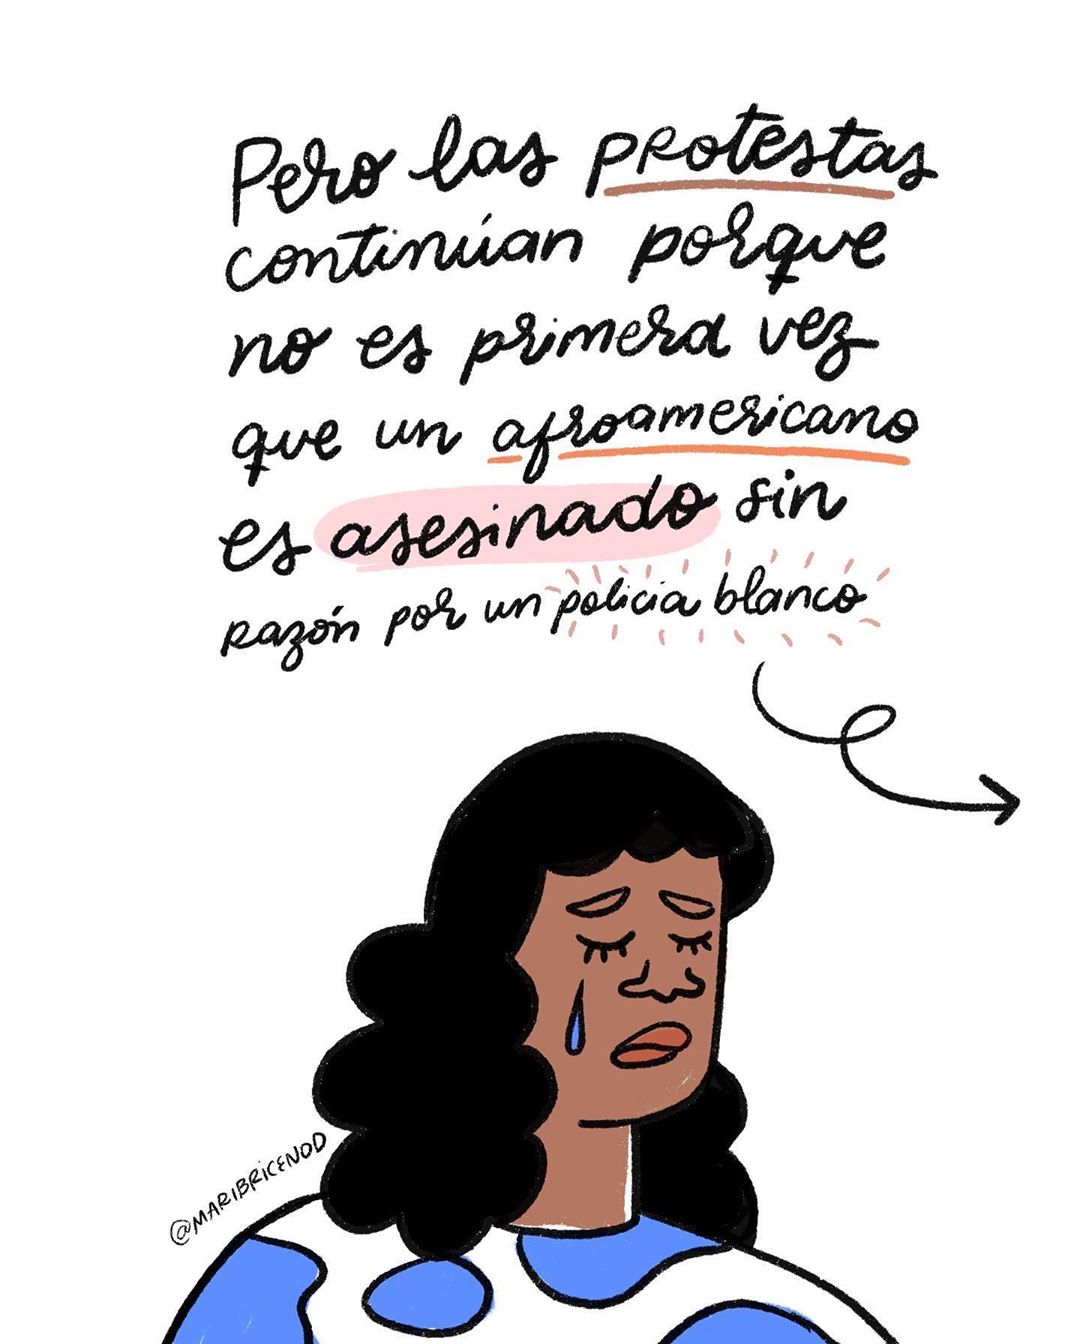 Pero las protestas
continúan porque
no es primera vez
que un afroamericano
es asesinado sin
razón por un policia blanco
@MARIBRICENOD